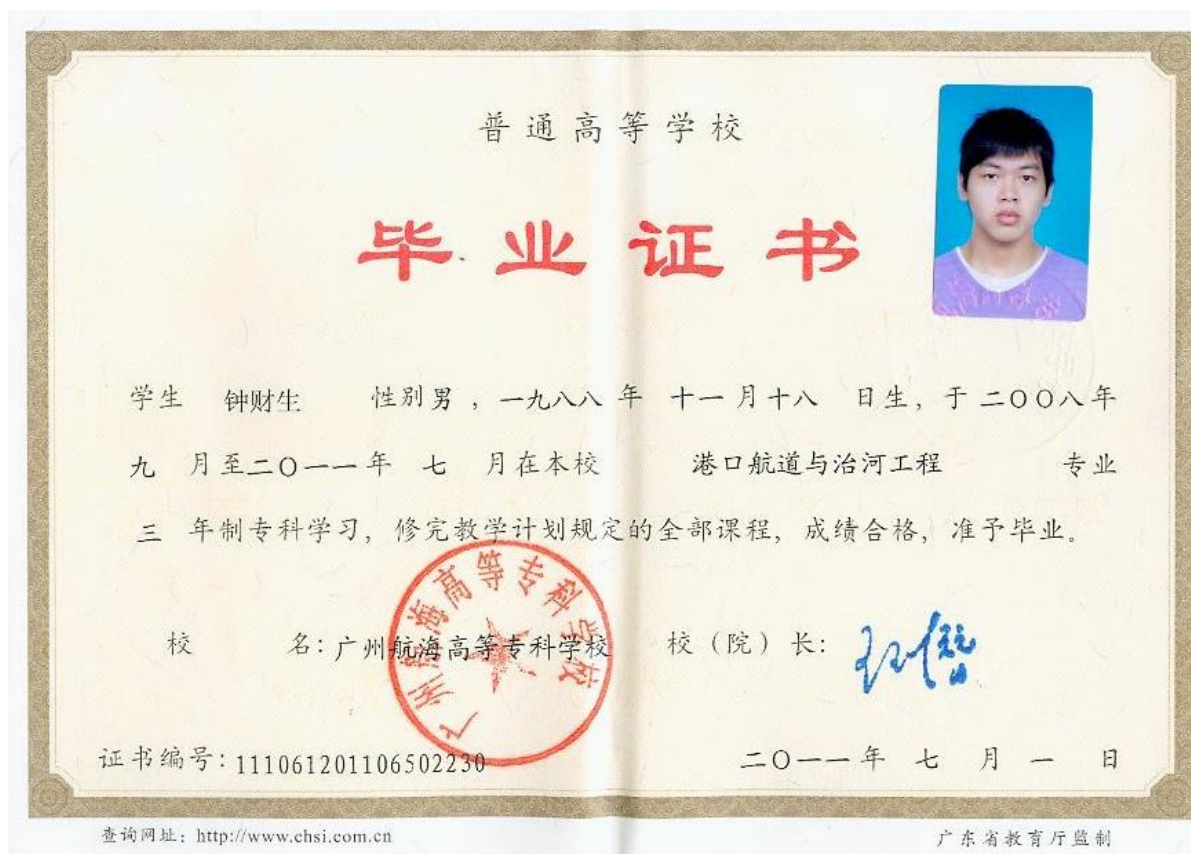 普通高等学校
毕业证书
学生 钟财生 性别男，一九八八年 十一月十八 日生，于二〇〇八年
九 月至二〇一一年 七 月在本校 港口航道与治河工程 专业
三 年制专科学习，修完教学计划规定的全部课程，成绩合格，准予毕业。
广州航海高等专科学校
校 名：广州航海高等专科学校 校（院）长：
证书编号：111061201106502230 二〇一一年 七 月 一 日
查询网址：http://www.chsi.com.cn 广东省教育厅监制